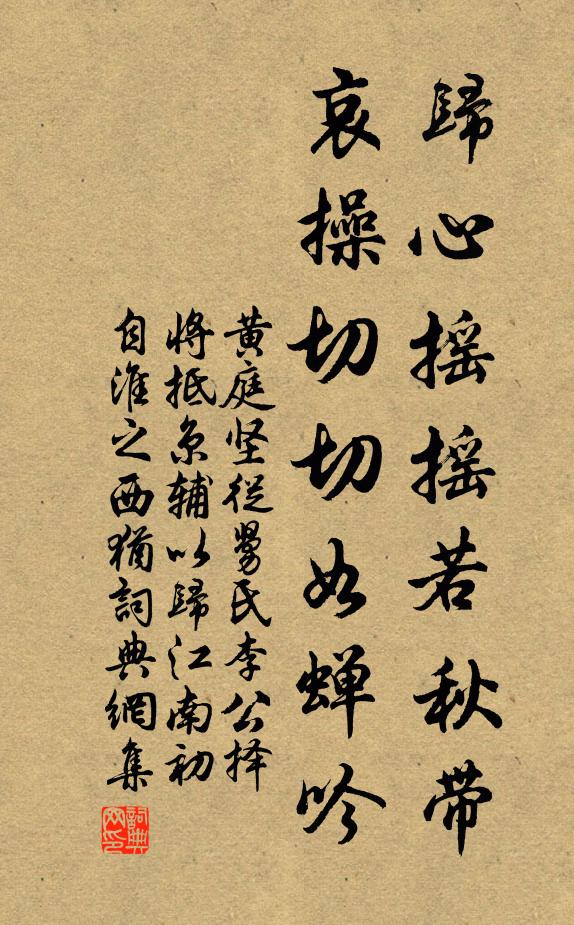 歸心搖搖若秋帶
哀操切切如蝉吟
黄庭坚從舅氏李公择
將抵京輔以歸江南初
自淮之西猶詞典網集
詞典網印